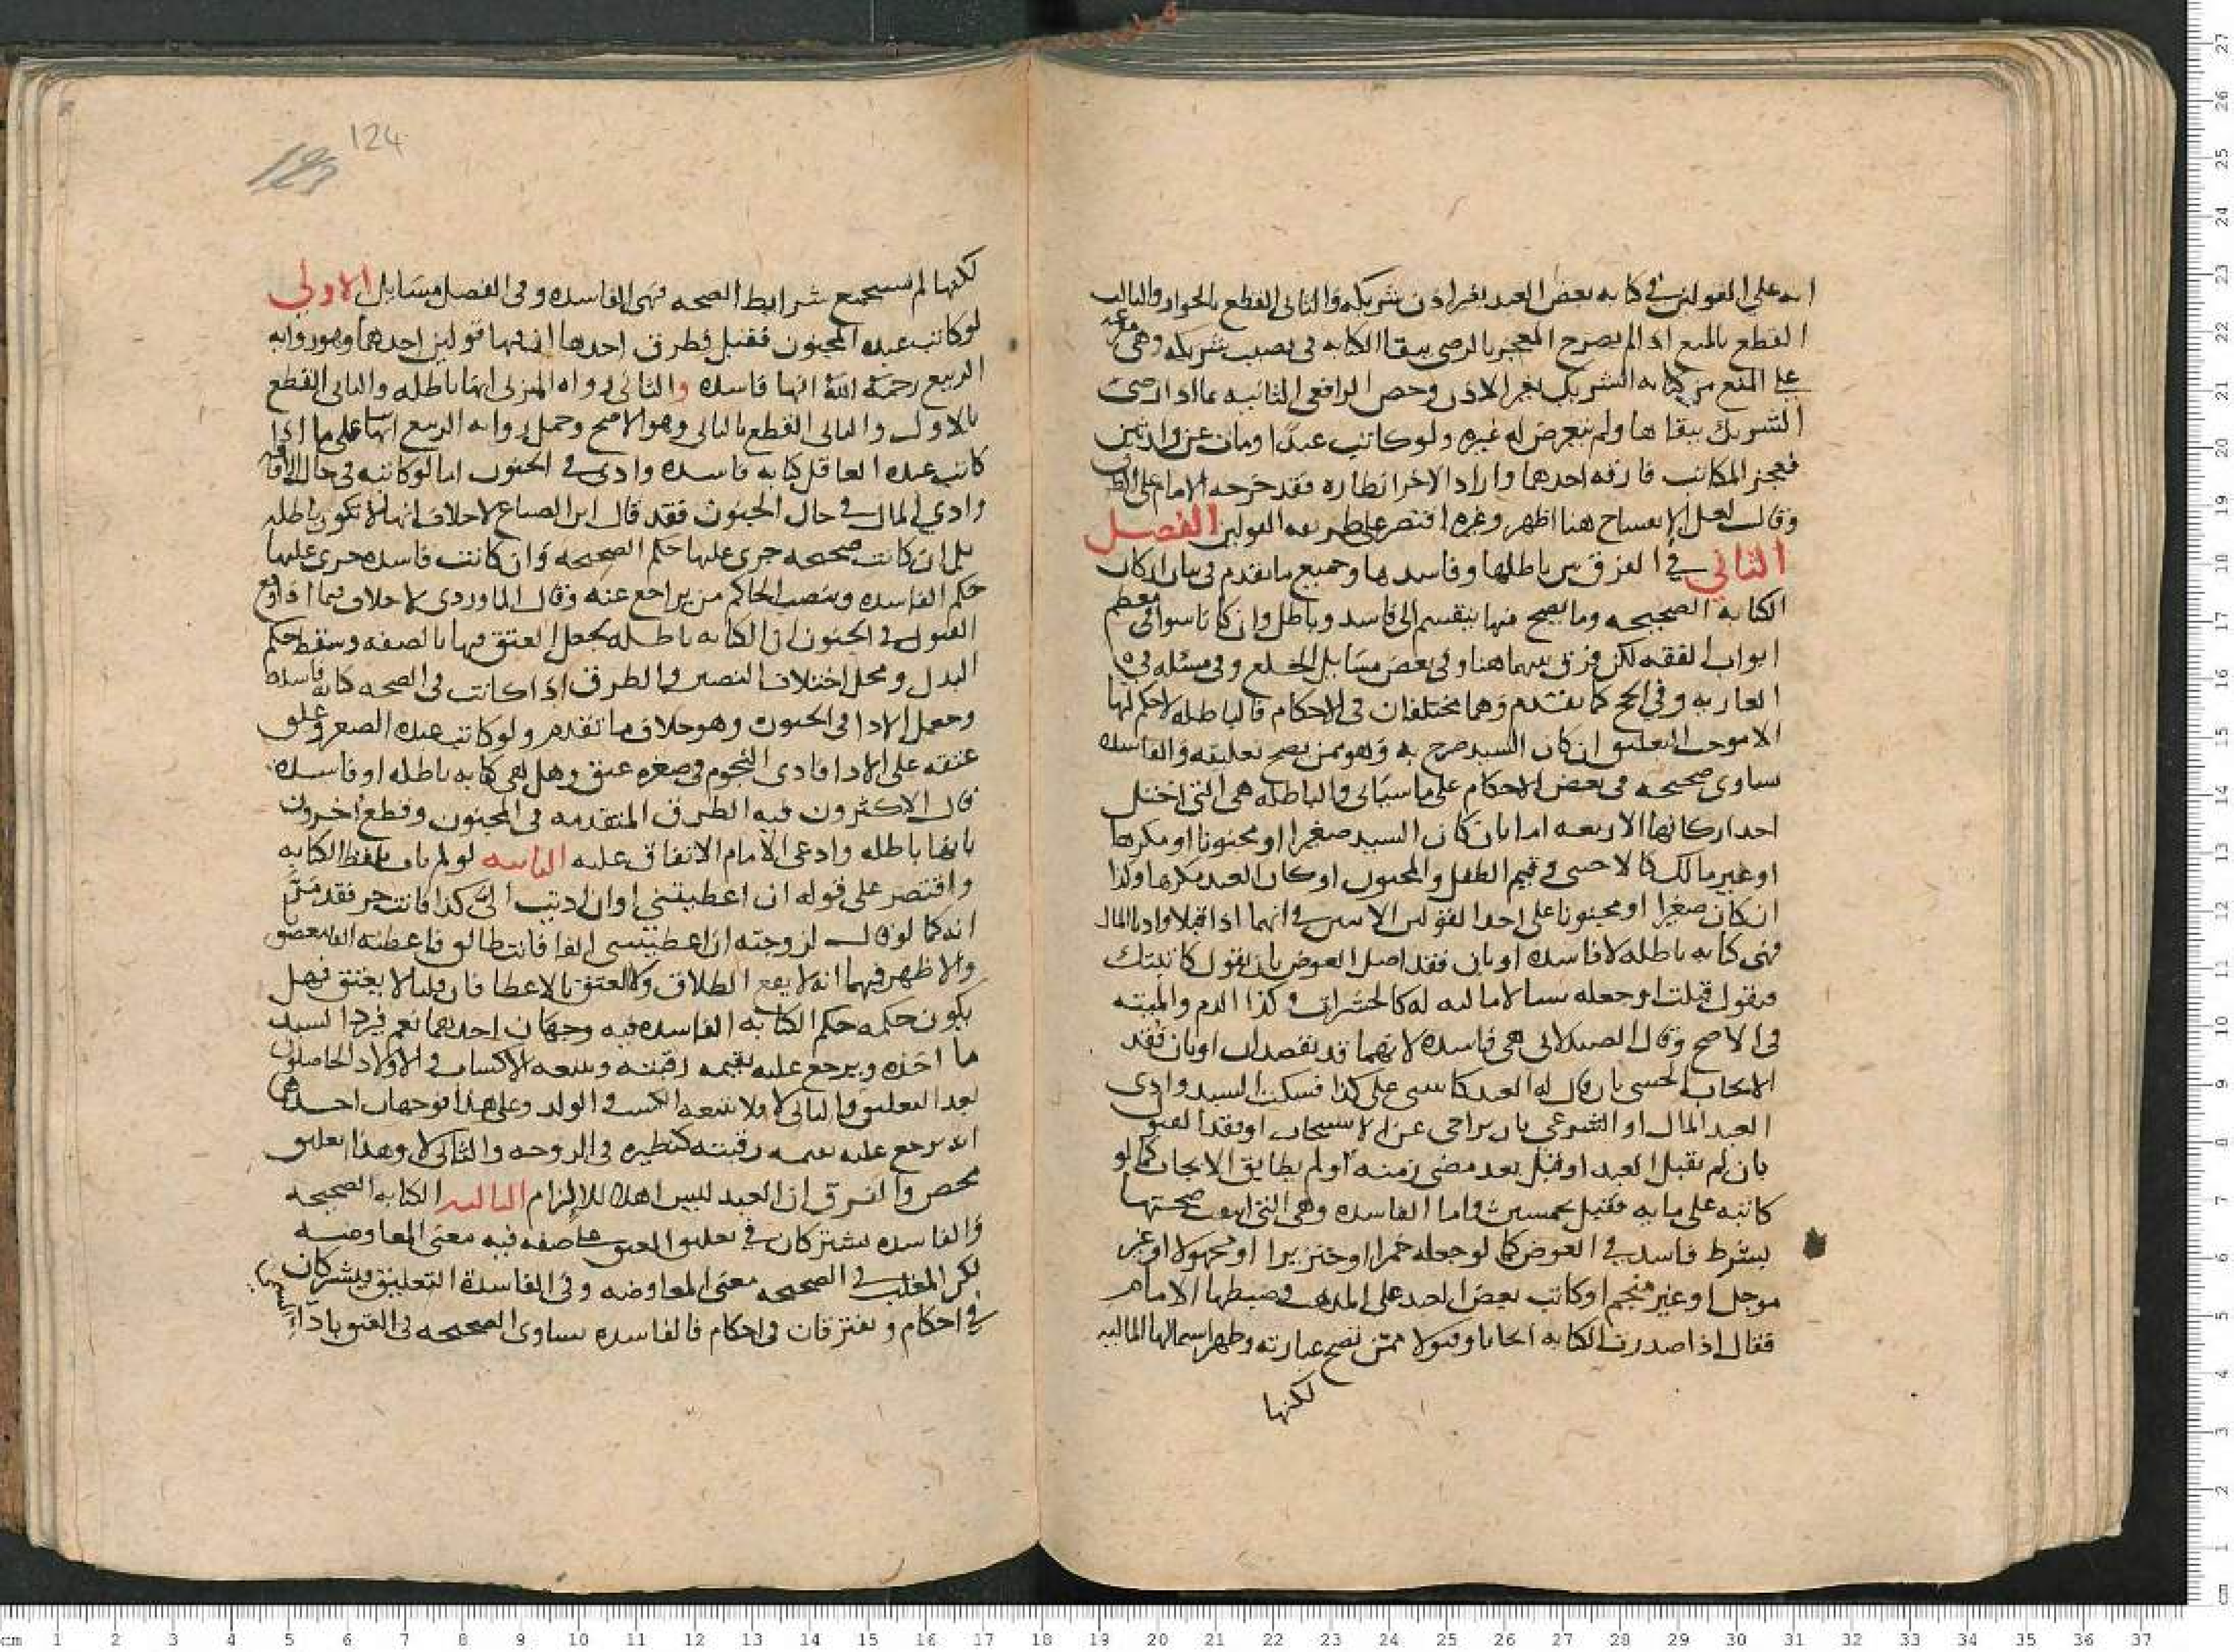 انه على القولين في كتابه بعض العبد بغير اذن شريكه والثاني القطع بالجواز والثالث
القطع بالمنع اذا لم يصرح المعجز بالرضى ببقا الكتابه في نصيب شريكه وهي مفرعه
على المنع من كتابه الشريك بغير الاذن وخص الرافعي الثانيه بما اذا رضي
الشريك ببقاها ولم يتعرض له غيره ولو كاتب عبدا ومات عن ولدين
فعجز المكاتب فارقه احدهما واراد الاخر انظاره فقد خرجه الامام على الطرق
وقال لعل الانفساخ هنا اظهر وغيره اقتصر على طريقه القولين الفصل
الثاني في الفرق بين باطلها وفاسدها وجميع ما تقدم في بيان اركان
الكتابه الصحيحه وما يصح منها ينقسم الى فاسد وباطل وان كانا سوا في معظم
ابواب الفقه لكن فرق بينهما هنا وفي بعض مسايل الخلع وفي مسئله في
العاريه وفي الحج كما تقدم وهما مختلفان في الاحكام فالباطله لا حكم لها
الا موجب التعليق ان كان السيد صرح به وهو ممن يصح تعليقه والفاسده
تساوي صحيحه في بعض الاحكام على ما سياتي والباطله هي التي اختل
احد اركانها الاربعه اما بان كان السيد صغيرا او مجنونا او مكرها
او غير مالك كالاجنبي وقيم الطفل والمجنون او كان العبد مكرها وكذا
ان كان صغيرا او مجنونا على احد القولين الاتيين في انهما اذا قبلا واديا المال
فهي كتابه باطله لا فاسده او بان فقد اصل العوض بان يقول كاتبتك
ويقول قبلت او جعله شيا لا ماليه له كالحشرات وكذا الدم والميته
في الاصح وقال الصيدلاني هي فاسده لانهما قد يقصدان او بان فقد
الايجاب الحسي بان قال له العبد كاتبني على كذا فسكت السيد وادى
العبد المال او الشرعي بان تراخى عن الاستيجاب او فقد القبول
بان لم يقبل العبد او قبل بعد مضي زمنه او لم يطابق الايجاب كما لو
كاتبه على مايه فقبل بخمسين واما الفاسده وهي التي امتنعت صحتها
بشرط فاسد في العوض كما لو جعله خمرا او خنزيرا او مجهولا او غير
موجل او غير منجم او كاتب بعض العبد على المذهب وضبطها الامام
فقال اذا صدرت الكتابه ايجابا وقبولا ممن تصح عبارته وظهر اشتمالها الماليه
لكنها
124
123
لكنها لم تستجمع شرايط الصحه فهي الفاسده وفي الفصل مسايل الاولى
لو كاتب عبده المجنون فقبل فطرق احدها ان فيها قولين احدهما وهو روايه
الربيع رحمه الله انها فاسده والثاني رواه المزني انها باطله والثاني القطع
بالاول والثالث القطع بالثاني وهو الاصح وحمل روايه الربيع انها على ما اذا
كاتب عبده العاقل كتابه فاسده وادى في الجنون اما لو كاتبه في حال الافاقه
وادى المال في حال الجنون فقد قال ابن الصباغ لا خلاف انها لا تكون باطله
بل ان كانت صحيحه جرى عليها حكم الصحيحه وان كانت فاسده جرى عليها
حكم الفاسده وينصب الحاكم من يراجع عنه وقال الماوردي لا خلاف فيما اذا وقع
القبول في الجنون ان الكتابه باطله يحصل العتق فيها بالصفه وسقط حكم
البدل ومحل اختلاف النصين والطرق اذا كاتب في الصحه كتابه فاسده
وحصل الادا في الجنون وهو خلاف ما تقدم ولو كاتب عبده الصغير وعلق
عتقه على الادا فادى النجوم في صغره عتق وهل هي كتابه باطله او فاسده
قال الاكثرون فيه الطرق المتقدمه في المجنون وقطع اخرون
بانها باطله وادعى الامام الاتفاق عليه الثانيه لو لم يات بلفظ الكتابه
واقتصر على قوله ان اعطيتني او ان اديت الي كذا فانت حر فقد مر
انه كما لو قال لزوجته ان اعطيتني الفا فانت طالق فاعطته الفا
والاظهر فيهما انه لا يقع الطلاق ولا العتق بالاعطا فان قلنا لا يعتق فهل
يكون حكمه حكم الكتابه الفاسده فيه وجهان احدهما نعم فيرد السيد
ما اخذه ويرجع عليه بقيمه رقبته ويتبعه الاكساب والاولاد الحاصلون
بعد التعليق والثاني لا فلا يتبعه الكسب والولد وعلى هذا فوجهان احدهما
انه يرجع عليه بقيمه رقبته كنظيره في الزوجه والثاني لا وهذا تعليق
محض والفرق ان العبد ليس اهلا للالزام الثالثه الكتابه الصحيحه
والفاسده يشتركان في تعليق العتق على صفه فيه معنى المعاوضه
لكن المغلب في الصحيحه معنى المعاوضه وفي الفاسدة التعليق ويشتركان
في احكام ويفترقان في احكام فالفاسده تساوي الصحيحه في العتق باداء